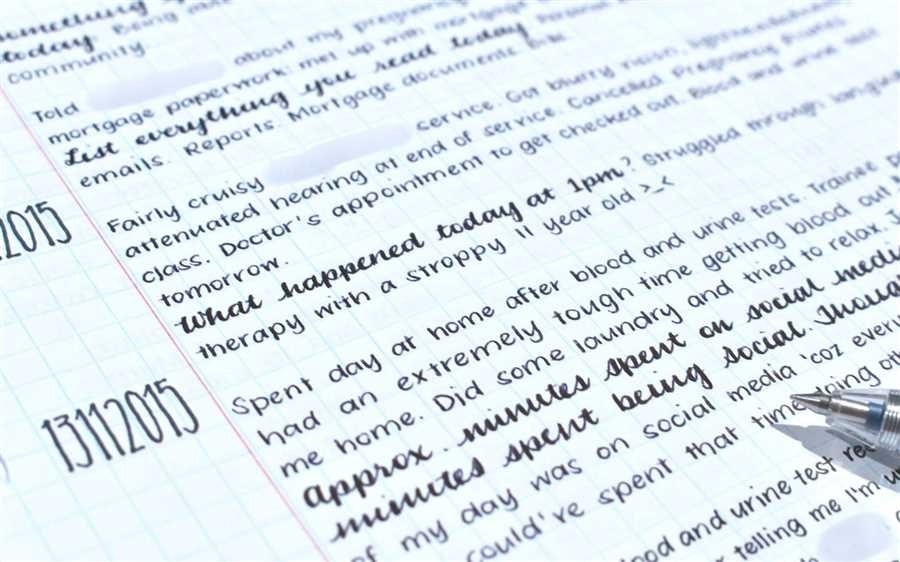 something
today. Being
community.
Told about my pregnancy
mortgage paperwork; met up with mortgage
List everything you read today. Personal
emails. Reports. Mortgage documents.
Fairly cruisy service. Got blurry vision,
attenuated hearing at end of service. Cancelled Pregnancy Pilates
class. Doctor's appointment to get checked out. Blood and urine test
tomorrow.
2015
What happened today at 1pm? Struggled through
therapy with a stroppy 11 year old >_<
Spent day at home after blood and urine tests. Trainee
had an extremely tough time getting blood out
me home. Did some laundry and tried to relax.
approx. minutes spent on social media
minutes spent being social. Though
13112015
of my day was on social media 'coz
could've spent that time doing
blood and urine test
telling me I'm